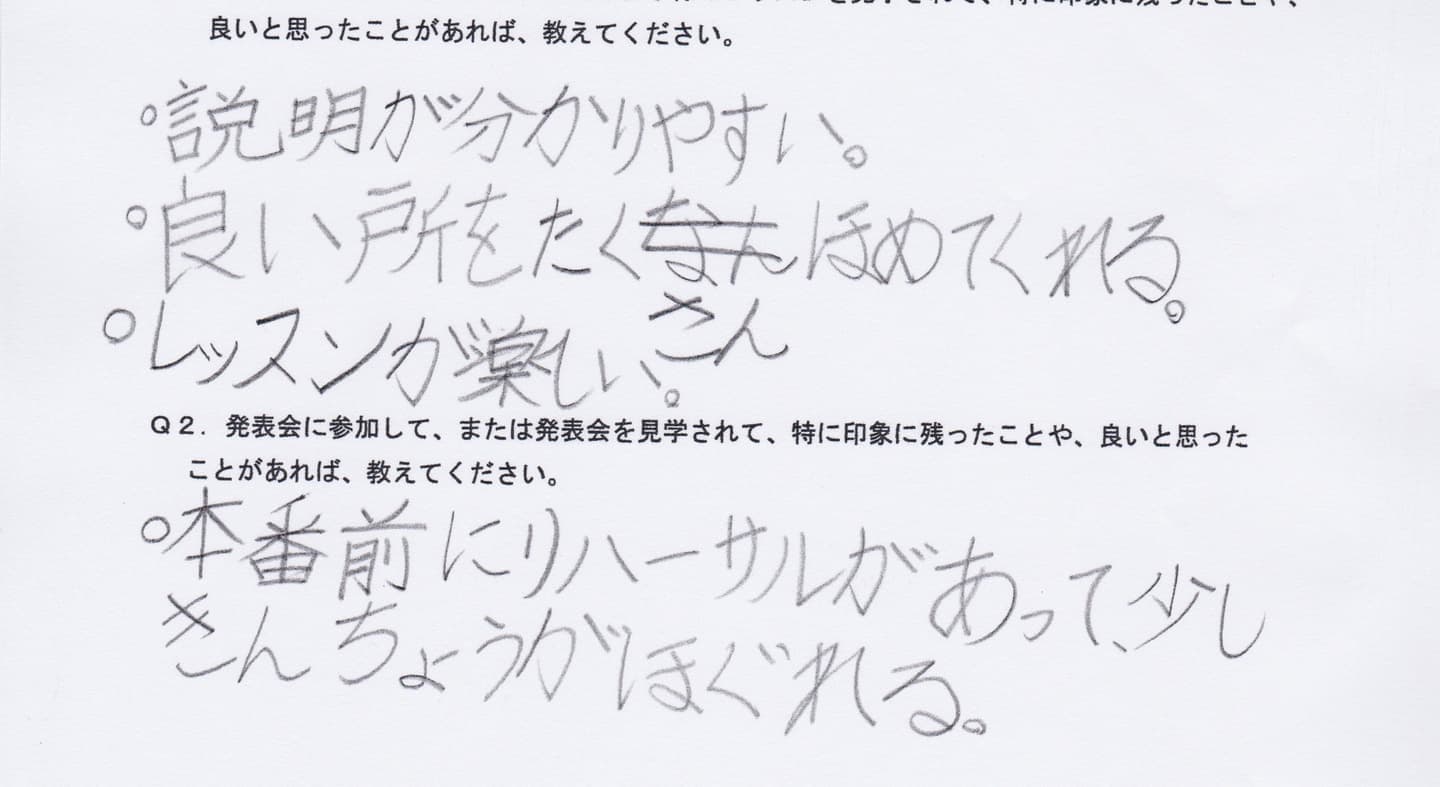 を見学されて、特に印象に残ったことや、
良いと思ったことがあれば、教えてください。
○説明が分かりやすい。
○良い所をたくさんほめてくれる。
○レッスンが楽しい。
Q2．発表会に参加して、または発表会を見学されて、特に印象に残ったことや、良いと思った
ことがあれば、教えてください。
○本番前にリハーサルがあって、少し
きんちょうがほぐれる。